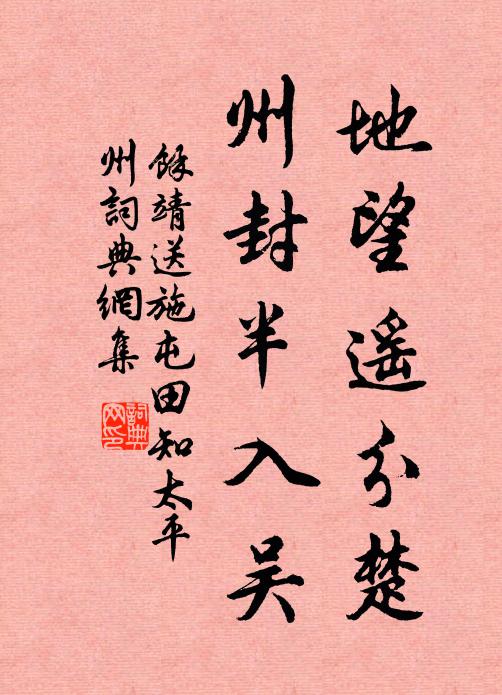 地望遥分楚
州封半入吴
餘靖送施屯田知太平
州詞典網集
詞典网印